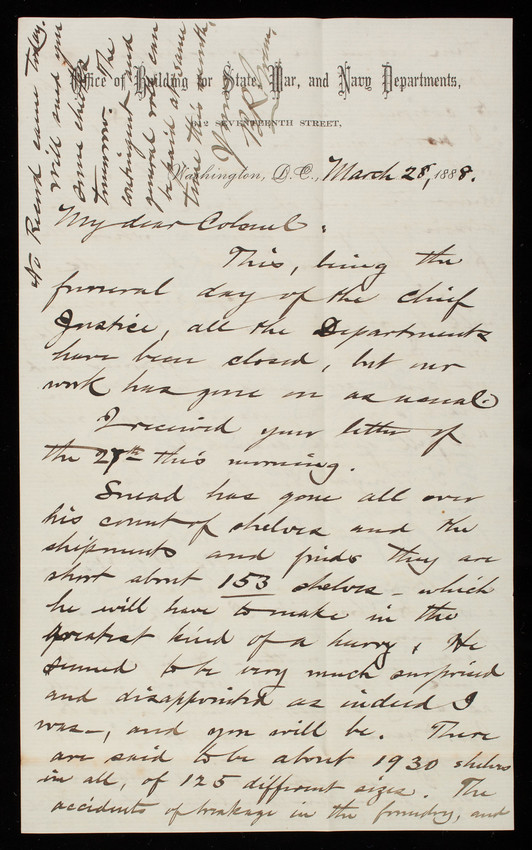 Office of Building for State, War, and Navy Departments,
SEVENTEENTH STREET,
Washington, D.C., March 28, 1888.
My dear Colonel:
This, being the
funeral day of the Chief
Justice, all the Departments
have been closed, but our
work has gone on as usual.
I received your letter of
the 27th this morning.
Snead has gone all over
his count of shelves and the
shipments and finds they are
short about 153 shelves - which
he will have to make in the
greatest kind of a hurry. He
seemed to be very much surprised
and disappointed as indeed I
was -, and you will be. There
are said to be about 1930 shelves
in all, of 125 different sizes. The
accidents of breakage in the foundry, and
No Record came today.
Will send you
some checks
tomorrow. The
contingent and
general rolls can
be paid at some
time this month,